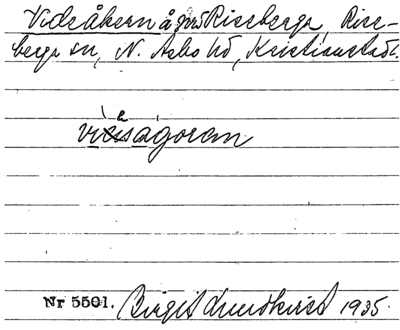 Videåkern å gård Riseberga, Rise-
berga sn, N. Åsbo hd, Kristianstads l.
Nr 5501. Birgit Lundkvist 1935.